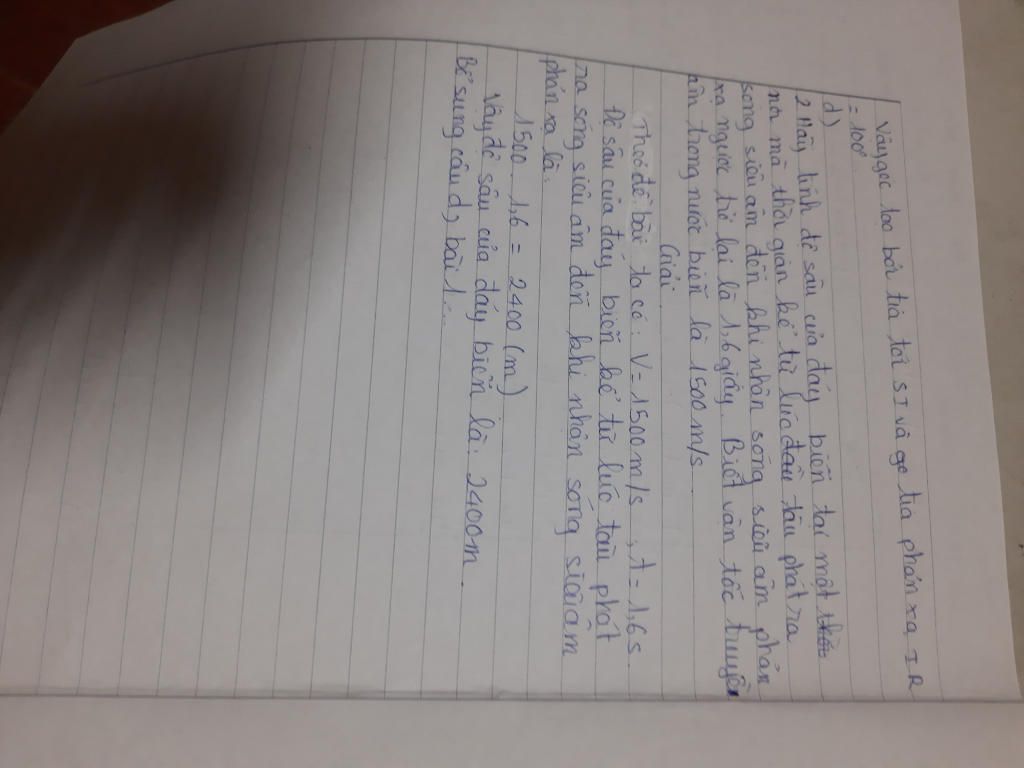 Vậy góc tạo bởi tia tới SI và gc tia phản xạ IR
= 100°
d)
2 Hãy tính độ sâu của đáy biển tại một
nà mà thời gian kể từ lúc đầu tàu phát ra
sóng siêu âm đến khi nhận sóng siêu âm phản
xạ ngược trở lại là 1,6 giây. Biết vận tốc truyền
âm trong nước biển là 1500m/s.
Giải.
Theo đề bài ta có: V=1500m/s ; t=1,6s.
Độ sâu của đáy biển kể từ lúc tàu phát
ra sóng siêu âm đến khi nhận sóng siêu âm
phản xạ là:
1500. 1,6 = 2400 (m)
Vậy độ sâu của đáy biển là: 2400m.
Bổ sung câu d, bài 1...